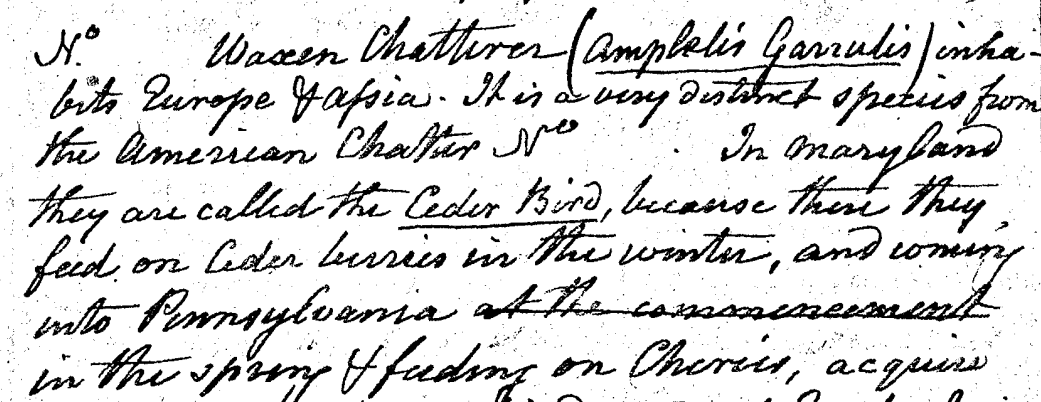 No Waxen Chatterer (Ampelis Garrulis) inha-
bits Europe & Assia. It is a very distinct species from
the American Chatter No In Maryland
they are called the Ceder Bird, because there they
feed on Ceder berries in the winter, and coming
into Pennsylvania at the commencement
in the spring & feeding on Cheries, acquire